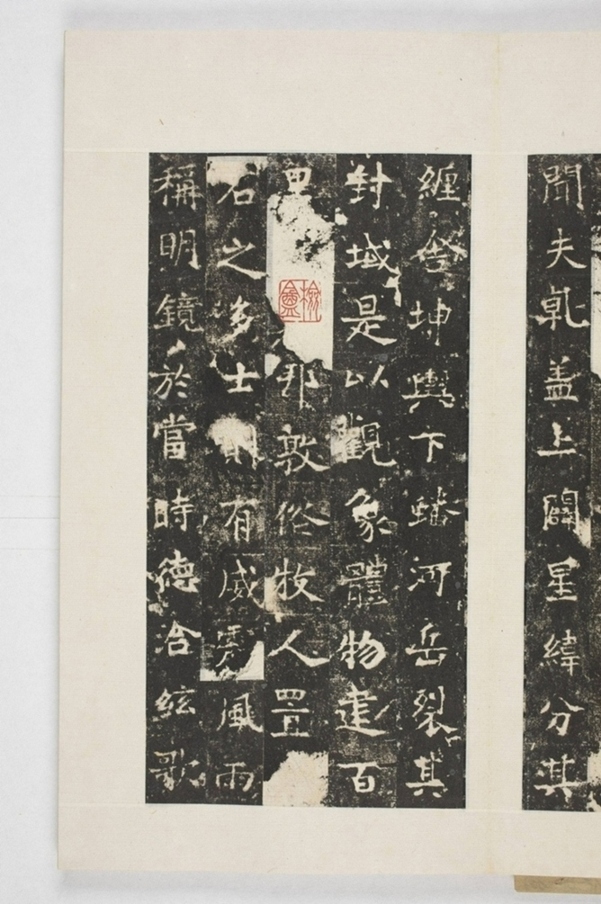 聞夫乹盖上闢星緯分其
纏舍坤輿下蟠河岳裂其
封域是以觀象體物建百
里邦敦俗牧人置
石之多士則有威風雨
稱明鏡於當時德洽絃歌